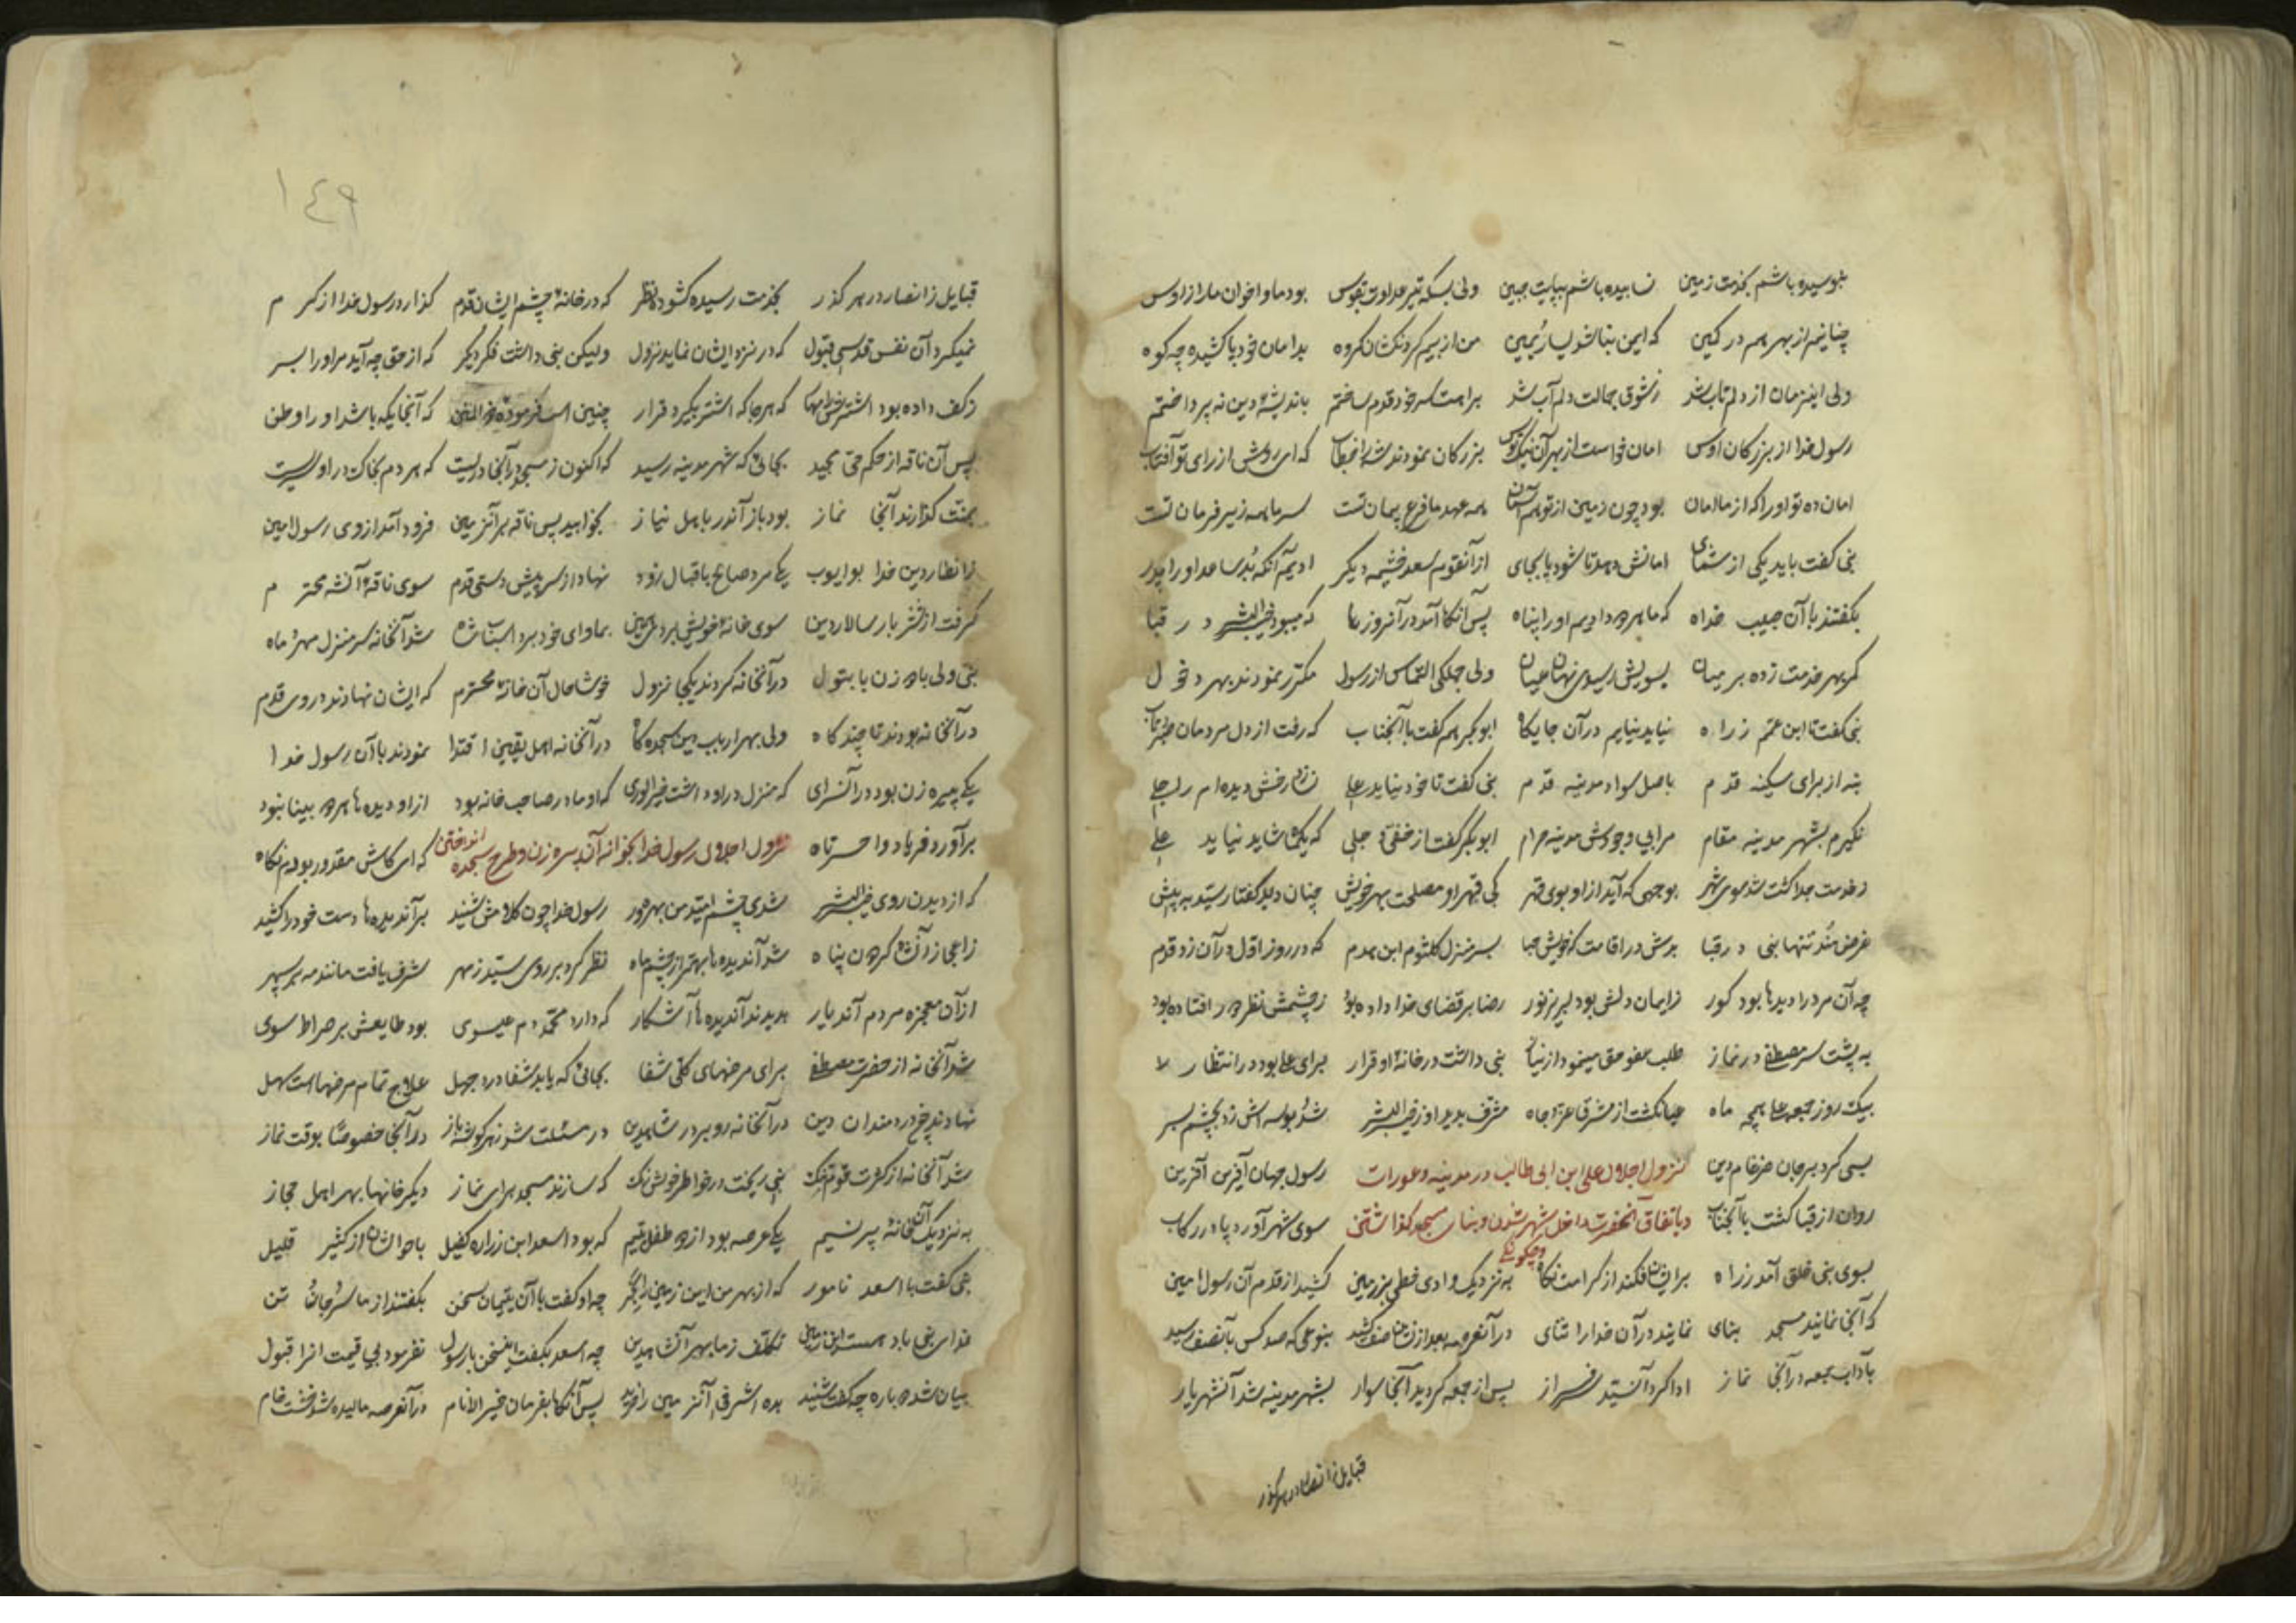 ببوسیده باشم بخدمت زمین نساییده باشم بپایت جبین ولی بسکه تیر عداوت بقوس بود ما و اخوان ما را ز اوس
چنانیم از بهر هم در کمین که ایمن بنا شد یسار از یمین من از بیم کردنکشان کروه بدامان خود پا کشیده چه کوه
ولی اینزمان از دلم تاب شد ز شوق جمالت دلم آب شد براهت سر خود قدم ساختم باندیشهٔ دین نه پرداختم
رسول خدا از بزرکان اوس امان خواست از بهر آن بزرکان نمودند شه را خطاب که ای روشن از رای تو آفتاب
امان ده تو او را که از ما امان بود چون زمین از تو هم آسمان همه عهد ما فرع پیمان تست سر ما همه زیر فرمان تست
نبی کفت باید یکی از شمای امانش دهد تا شود پا بجای از آنقوم سعد خثیمه دیکر
بکفتند با آن حبیب خداه که ما هر دو دادیم او را پناه پس آنکاه آمد در آنروزها که میبود خیر البشر در قبا
کمر بهر خدمت زده بر میان بسویش رسیدی نهان و عیان ولی جملکی التماس از رسول مکرر نمودند بهر دخول
نبی کفت تا ابن عمم ز راه نیاید نیایم در آن جایکاه ابوبکر هم کفت با آنجناب که رفت از دل مردمان صبر و تاب
بنه از برای سکینه قدم باصل سواد مدینه قدم نبی کفت تا خود نیاید علی
نکیرم بشهر مدینه مقام مرا بی وجودش مدینه حرام ابوبکر کفت از خفی و جلی که یکماه شاید نیاید علی
ز خدمت جدا کشت شد سوی شهر بوجهی که آید از او بوی قهر
غرض ماند تنها نبی در قبا بسر منزل کلثوم ابن هدم که در روز اول در آن زد قدم
چه آن مرد را دیدها بود کور ز ایمان دلش بود لبریز نور رضا بر قضای خدا داده بود ز چشمش نظر در افتاده بود
به پشت سر مصطفی در نماز طلب عفو حق مینمود از نیاز نبی داشت در خانهٔ او قرار برای علی بود در انتظار
بیک روز جمعه علی همچه ماه عیان کشت از مشرق عز و جاه مشرف بدیدار خیر البشر شد و بوسه اش زد بچشم و بسر
بسی کرد بر جان ضرغام دین نزول اجلال علی ابن ابی طالب در مدینه و عورات رسول جهان آفرین آفرین
روان از قبا کشت با آنجناب و باتفاق آنحضرت داخل شهر شدن و بنای مسجد کذاشتن سوی شهر آورد پا در رکاب
بسوی نبی خلق آمد ز راه بر ایشان فکند از کرامت نکاه به نزدیک وادی کشید از قدم آن رسول امین
که آنجا نمایند مسجد بنای نمایند در آن خدا را ثنای در آنعرصه بعد از زمانی صف کشید بنوعی که صد کس بآنصف رسید
بآداب جمعه در آنجا نماز ادا کرد آنسید سرفراز پس از جمعه کردید آنجا سوار بشهر مدینه شد آنشهریار
قبایل ز انصار در هر کذر
١٤٩
قبایل ز انصار در هر کذر بخدمت رسیده کشوده نظر که در خانهٔ چشم ایشان قدم کذارد رسول خدا از کرم
نمیکرد آن نفس قدسی قبول که در نزد ایشان نماید نزول ولیکن نبی داشت فکر دیکر که از حق چه آید مر او را بسر
ز کف داده بود اشترش را مهار که هر جا که اشتر بکیرد قرار چنین است فرمودهٔ ذو المنن که آنجایکه باشد او را وطن
پس آن ناقه از حکم حی مجید بجائی که شهر مدینه رسید که اکنون ز مسجد در آنجا دریست که هر دم بخاک در او سریست
بمنت کذارند آنجا نماز بود باز آندر باهل نیاز بخوابید پس ناقه بر آنزمین فرود آمد از وی رسول امین
ز انظار دین خدا بو ایوب یکی مرد صالح باقبال زود نهاد از سر پیش دستی قدم سوی ناقهٔ آنشه محترم
کرفت از شتر بار سالار دین سوی خانهٔ خویش برد بماوای خود برد اسباب شاه شد آنخانه سر منزل مهر و ماه
نبی و ولی با دو زن با بتول در آنخانه کردند یکجا نزول خوشا حال آن خانهٔ محترم که ایشان نهادند در وی قدم
در آنخانه بودند تا چند کاه ولی بهر ارباب دین سجده کاه در آنخانه اهل یقین اقتدا نمودند با آن رسول خدا
یکی پیره زن بود در آنسرای که منزل در او داشت خیر الوری که او مادر صاحب خانه بود از او دیده ها هر دو بینا نبود
برآورد فریاد واحسرتاه نزول اجلال رسول خدا بخانه آن پیره زن و طرح سجده انداختن که ای کاش مقدور بودم نکاه
که از دیدن روی خیر البشر شدی چشم امید من بهره ور رسول خدا چون کلامش شنید بر آندیده ها دست خود را کشید
ز اعجاز آنشاه کردون پناه شد آندیده ها بهتر از چشم ماه نظر کرد بر روی سید ز مهر شرف یافت مانند مه بر سپهر
از آن معجزه مردم آندیار بدیدند آندیده ها آشکار که دارد محمد دم عیسوی بود طایعش بر صراط سوی
شد آنخانه از حضرت مصطفی برای مرضهای کلی شفا بجائی که یابد شفا درد جهل علاج تمام مرضهاست سهل
نهادند رخ دردمندان دین در آنخانه رو بر در شاه دین در مسئلت شد ز هر کوشه باز در آنجا خصوصا بوقت نماز
شد آنخانه از کثرت قوم تنک نبی ریخت در خواطر خویش رنک که سازند مسجد برای نماز دیکر خانها بهر اهل حجاز
به نزدیک آن خانهٔ پر نسیم یکی عرصه بود از دو طفل یتیم که بود اسعد ابن زراره کفیل باحوالشان از کثیر و قلیل
نبی کفت با اسعد نامور که از بهر من این زمین را بخر چه او کفت با آن یتیمان سخن بکفتند از ما سر و جان و تن
فدای نبی باد تکلف ز ما بهر آنشاه دین چه اسعد بکفت اینسخن با رسول نفرمود بی قیمت انرا قبول
بیان شد دوباره چه کفت و شنید بده اشرفی آنزمین را خرید پس آنکاه بفرمان خیر الانام در آنعرصه مالیده شد خشت خام